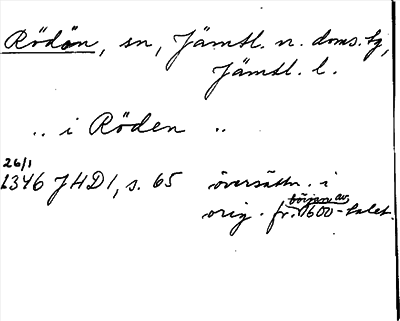 Rödön, sn, Jämtl. n. doms. tg,
Jämtl. l.
.. i Röden ..
26/1
1346 JHD 1, s. 65 översättn. i
början av
orig. fr. 1600-talet.